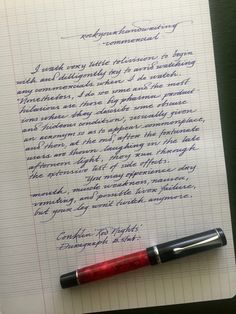 rockyourhandwriting
-commercial
I watch very little television to begin
with and dilligently try to avoid watching
any commercials when I do watch.
Nonetheless, I do see some and the most
hilarious are those by pharma product
ions where they describe some obscure
and hideous condition, usually given
an acronym so as to appear commonplace,
and then, at the end, after the fortunate
users are shown laughing in the late
afternoon light, they run through
the extensive list of side effects.
You may experience dry
mouth, muscle weakness, nausea,
vomiting, and possible liver failure,
but your leg won't twitch anymore.
Conklin 'Red Nights'
Duragraph